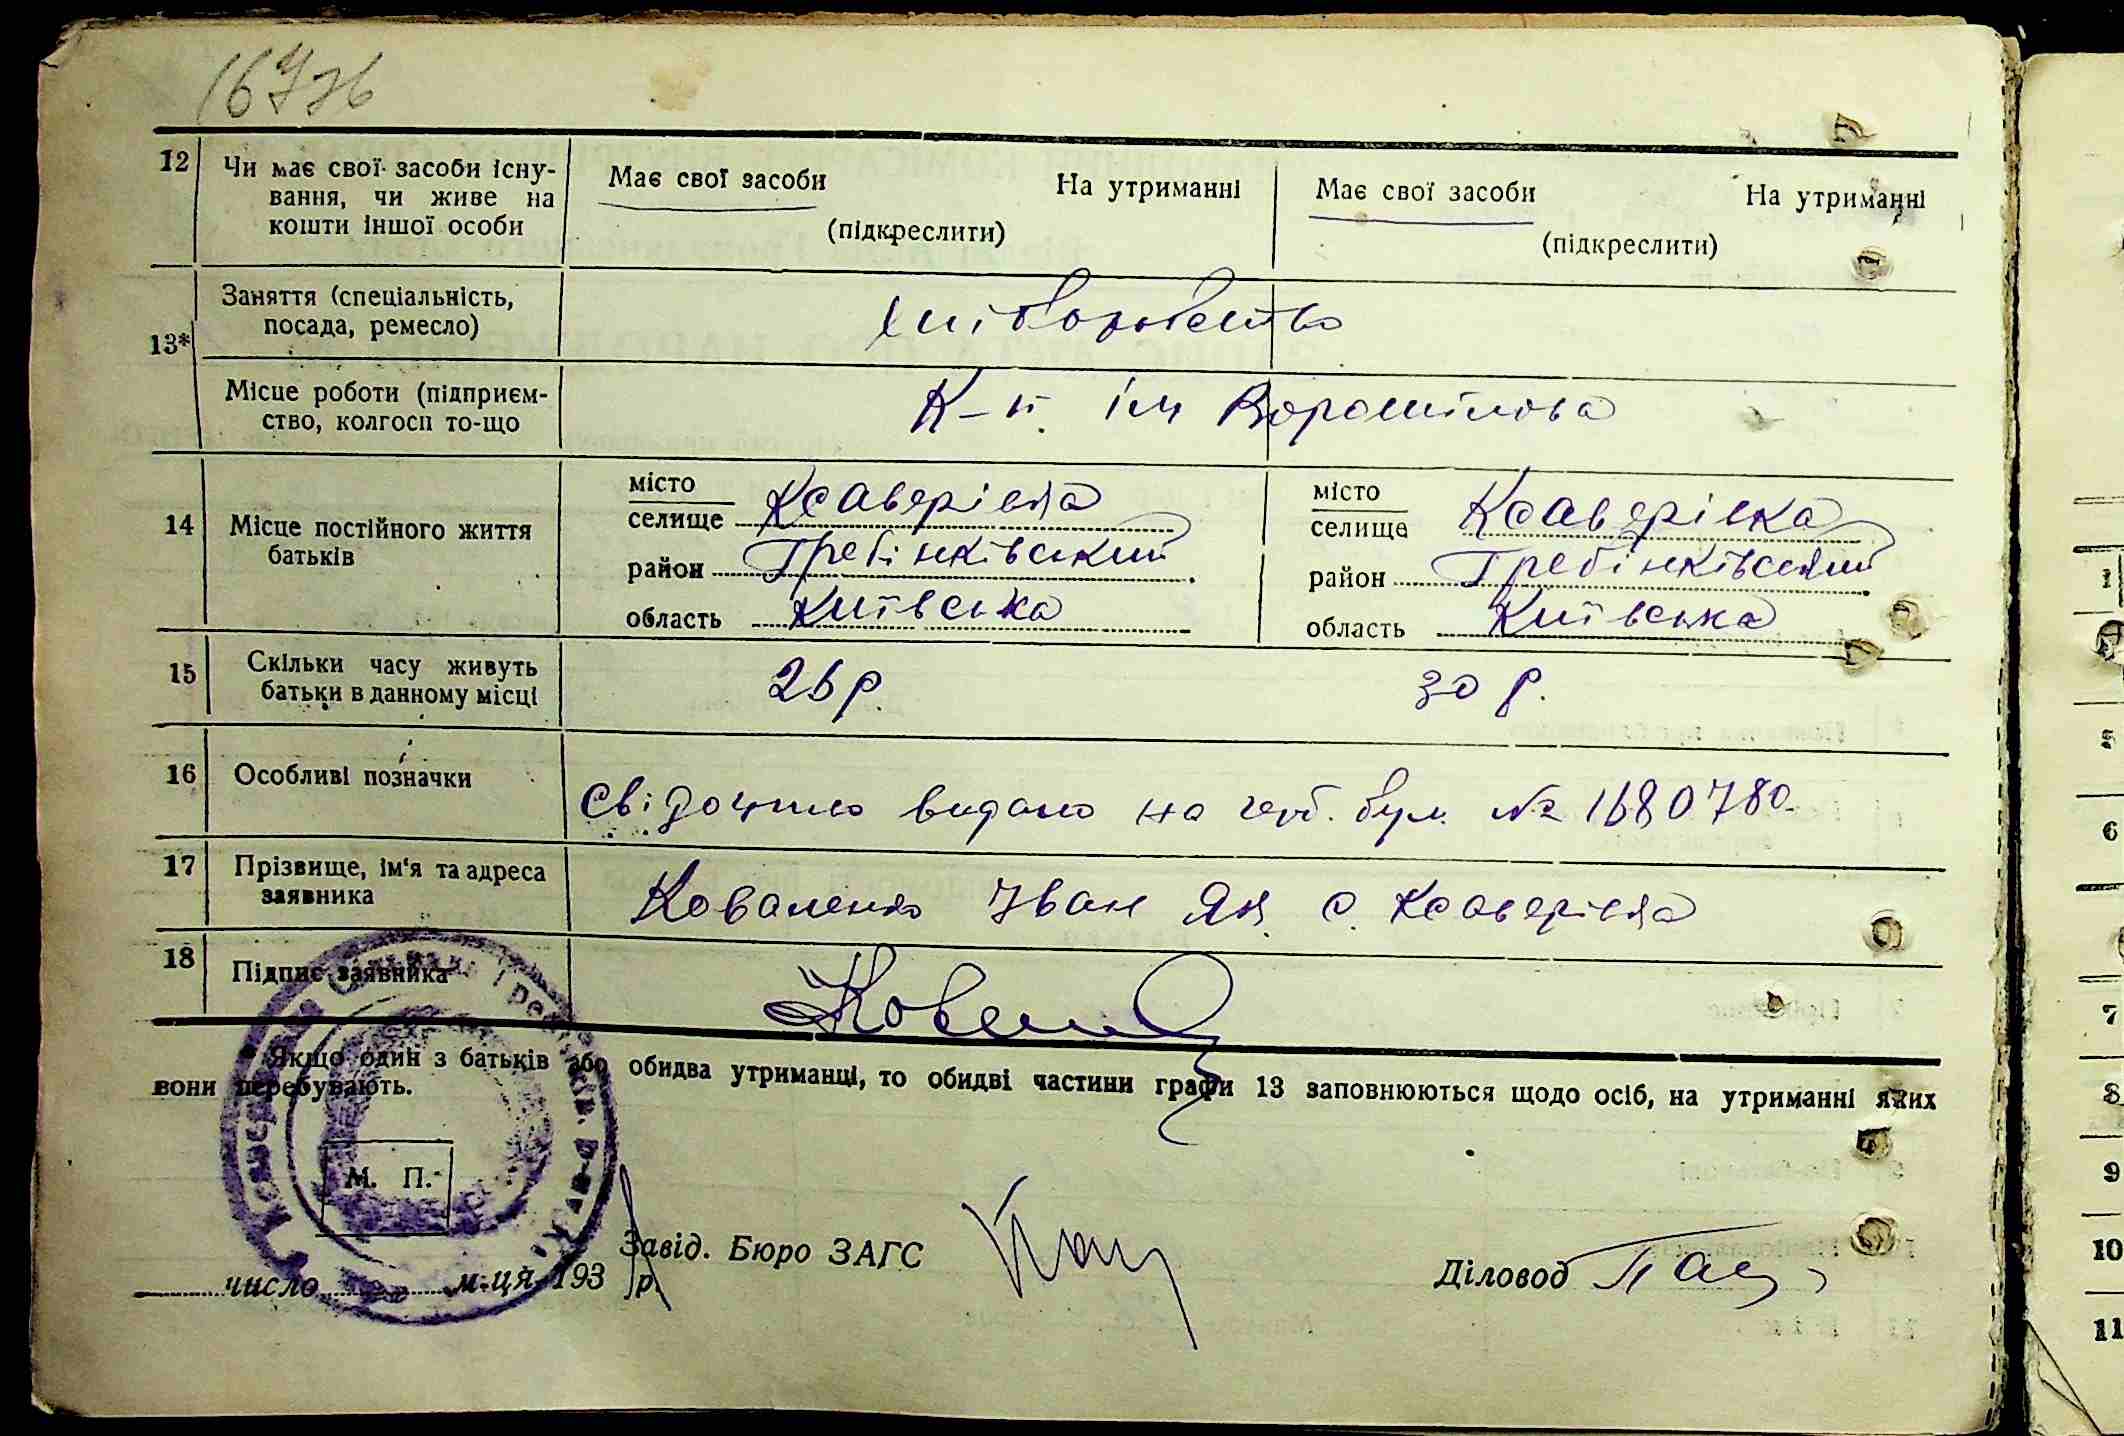 12 Чи має свої засоби існу-
вання, чи живе на
кошти іншої особи
Має свої засоби На утриманні
(підкреслити)
Має свої засоби На утриманні
(підкреслити)
13*
Заняття (спеціальність,
посада, ремесло)
хліборобство
Місце роботи (підприєм-
ство, колгосп то-що
К-п. ім Ворошілова
14 Місце постійного життя
батьків
місто
селище Ксаверівка
район Гребінківський
область Київська
місто
селище Ксаверівка
район Гребінківський
область Київська
15 Скільки часу живуть
батьки в данному місці
26 р. 30 р.
16 Особливі позначки
Свідоцтво видано на герб. бум. № 1680780
17 Прізвище, ім'я та адреса
заявника
Коваленко Іван Як. с. Ксаверівка
18 Підпис заявника
* Якщо один з батьків або обидва утриманці, то обидві частини графи 13 заповнюються щодо осіб, на утриманні яких
вони перебувають.
М. П.
Завід. Бюро ЗАГС
Діловод
число м-ця 193 р.
1
6
7
8
9
10
11